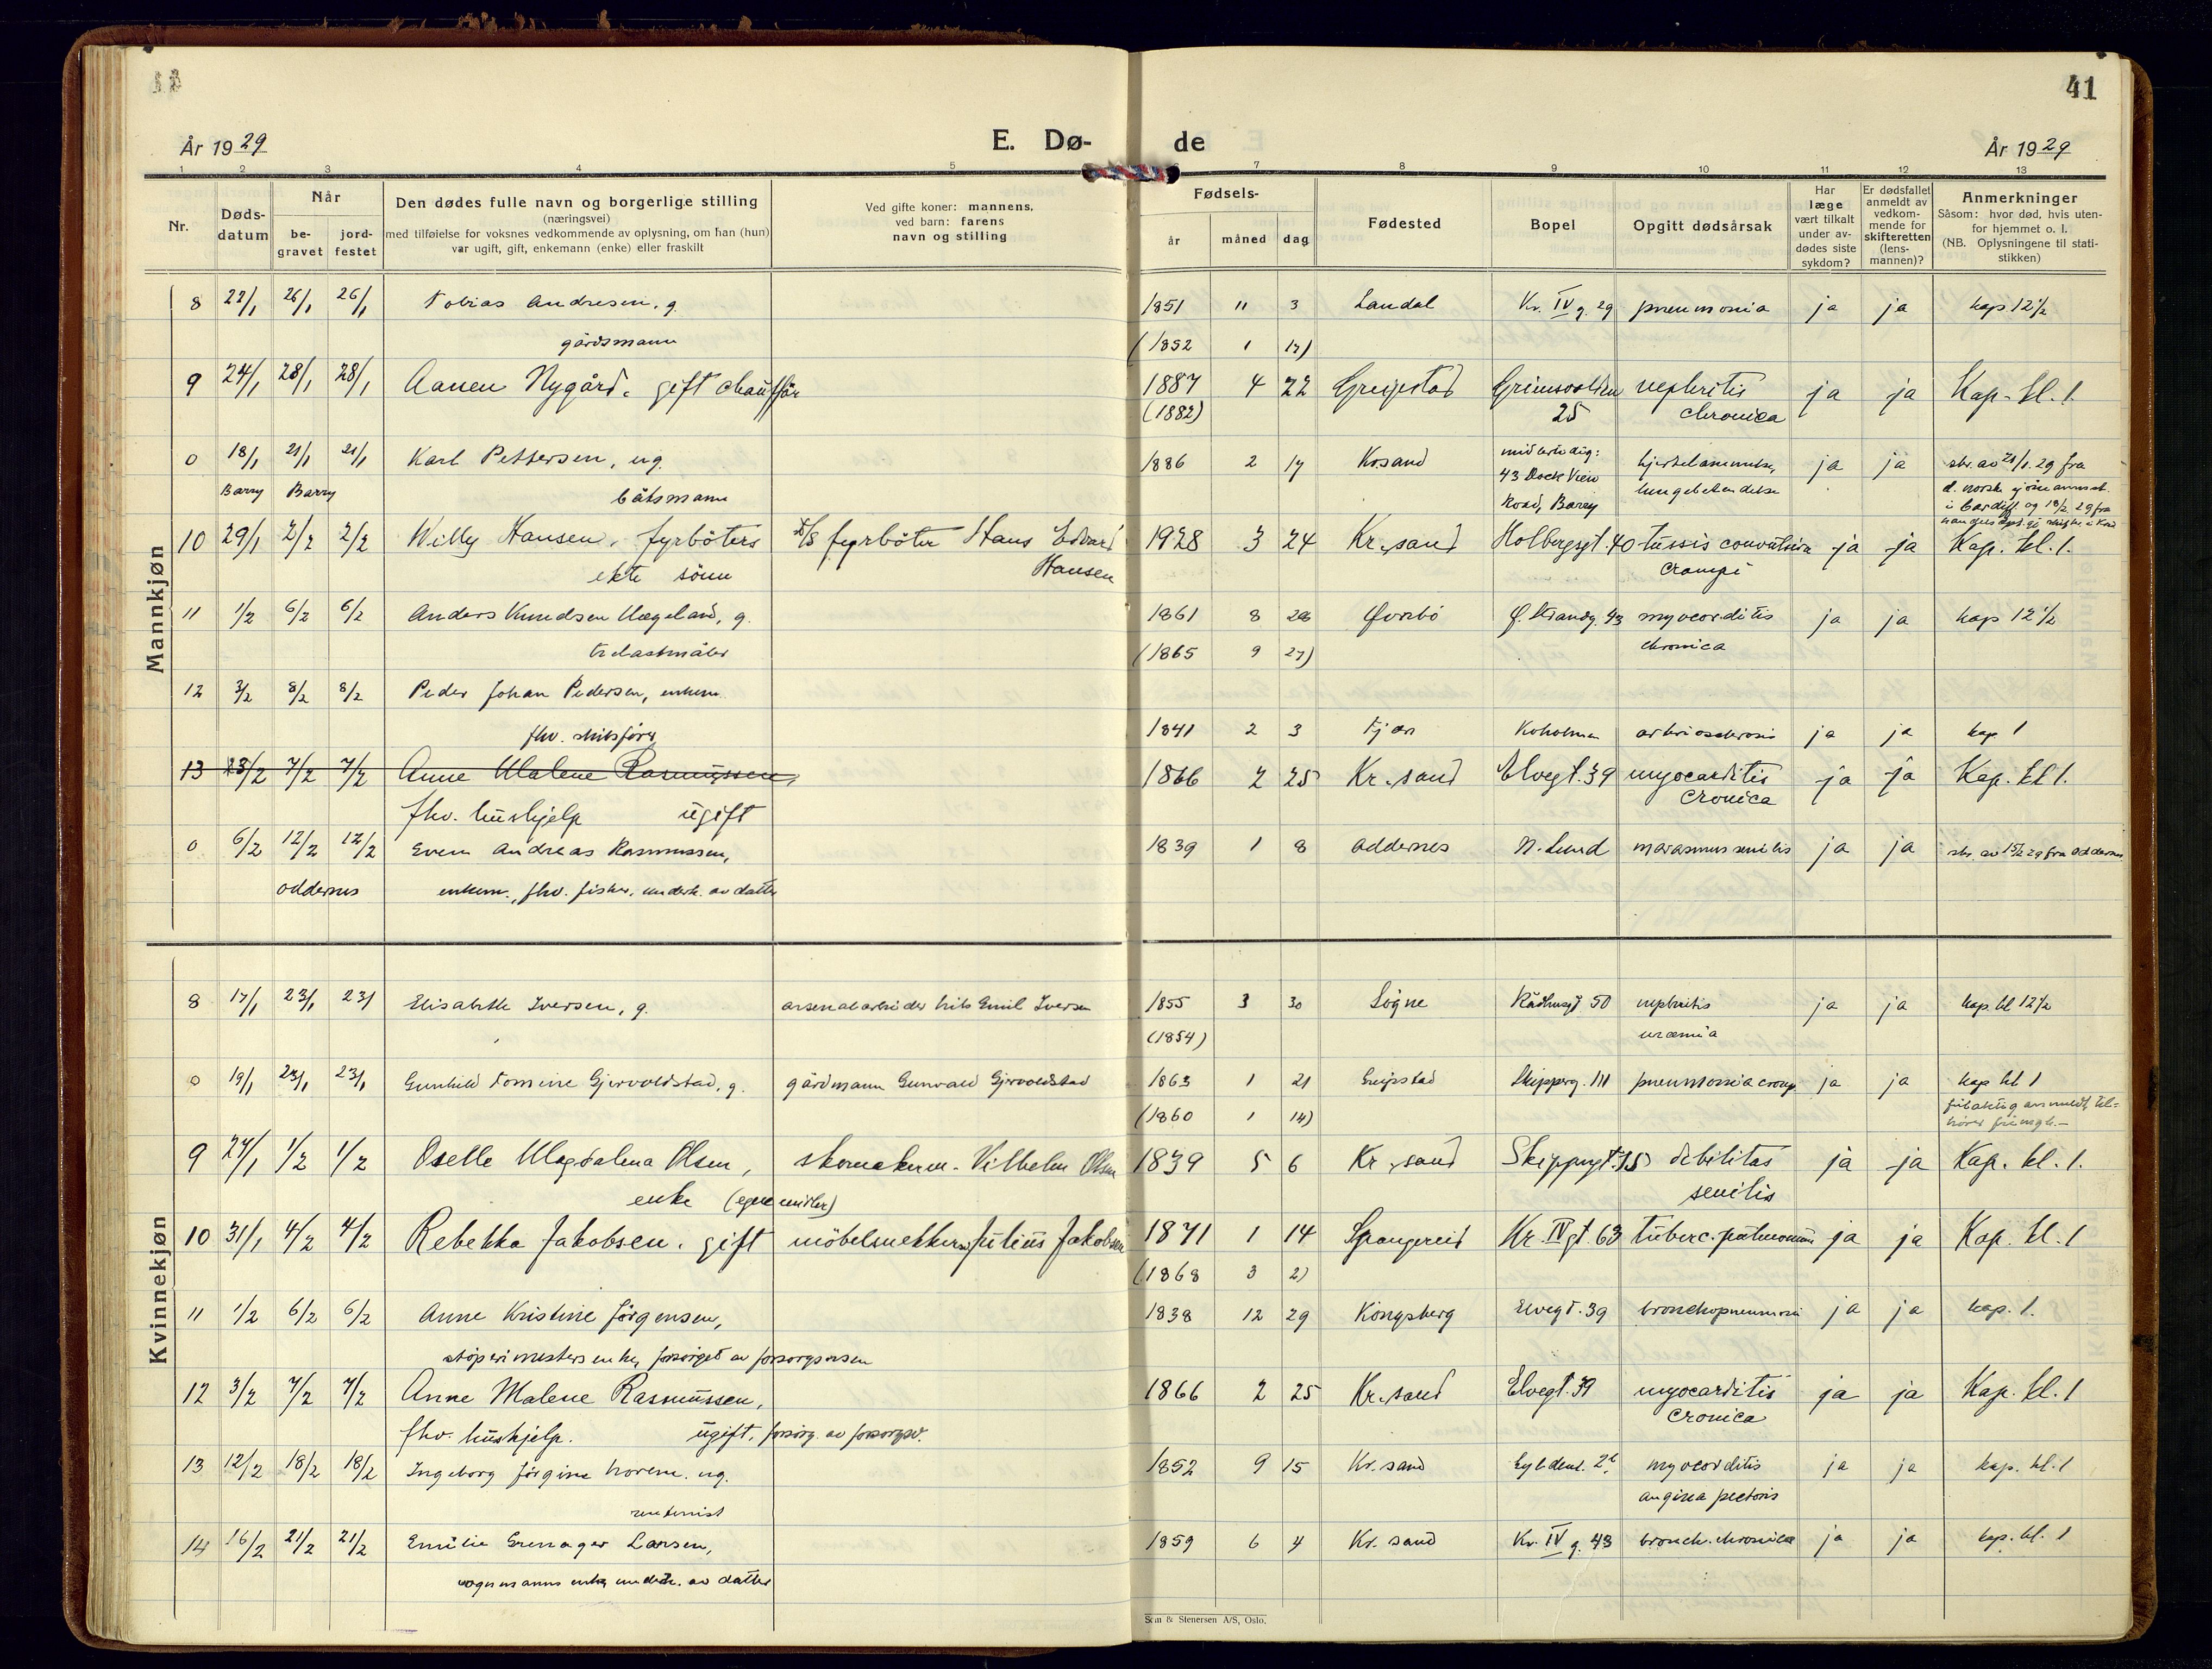 41
År 1929
E. Dø-
de
År 1929
1 2 3 4 5 7 8 9 10 11 12 13
Nr.
Døds-
datum
Når
be-
gravet
jord-
festet
Den dødes fulle navn og borgerlige stilling
(næringsvei)
med tilføielse for voksnes vedkommende av oplysning, om han (hun)
var ugift, gift, enkemann (enke) eller fraskilt
Ved gifte koner: mannens,
ved barn: farens
navn og stilling
Fødsels-
år måned dag
Fødested
Bopel
Opgitt dødsårsak
Har
læge
vært tilkalt
under av-
dødes siste
sykdom?
Er dødsfallet
anmeldt av
vedkom-
mende for
skifteretten
(lens-
mannen)?
Anmerkninger
Såsom: hvor død, hvis uten-
for hjemmet o. l.
(NB. Oplysningene til stati-
stikken)
Mannkjøn
8 22/1 26/1 26/1 Tobias Andresen, g. 1851 11 3 Landal Kr. IV g. 29 pneumonia ja ja kap 12½
gårdsmann (1852 1 17)
9 24/1 28/1 28/1 Aanen Nygård. gift chauffør 1887 4 22 Greipstad Grimsvollen nephritis ja ja Kap. kl. 1.
(1882) 25 chronica
0 18/1 21/1 21/1 Karl Pettersen, ug. 1886 2 14 Kr.sand midlertidig: ja ja
Barry Barry båtsmann 43 Dock View lungebetendelse
Road, Barry
10 29/1 2/2 2/2 Willy Hansen, fyrböters fyrböter Hans Edvard 1928 3 24 Kr.sand Holbergsgt. 40 tussis convulsiva ja ja Kap. kl. 1.
ekte sönn Hansen crampi
11 1/2 6/2 6/2 Anders Knudsen Hægeland, g. 1861 8 28 Øvrebö Ø. Strandg. 43 myocorditis ja ja kap 12½
trelastmåler (1865 9 27) chronica
12 3/2 8/2 8/2 Peder Johan Pedersen, enkem.
fhv. skibsfører 1841 2 3 Tjøm Koholmen ja ja kap 1
13 3/2 7/2 7/2 Anne Malene Rasmüssen, 1866 2 25 Kr.sand Elvegt. 39 myocarditis ja ja Kap. kl 1.
fhv. hüshjelp ügift cronica
0 6/2 12/2 12/2 Even Andreas Rasmussen, 1839 1 8 Oddernes N. Lund marasmus senilis ja ja skr. av 15/2 29 fra Oddernes
Oddernes enkem., fhv. fisker, underh. av datter
Kvinnekjøn
8 17/1 23/1 23/1 Elisabeth Iversen, g. arsenalarbeider Nils Emil Iversen 1855 3 30 Søgne Rådhusgt. 50 nephritis ja ja kap. kl 12½
(1854) uræmia
0 19/1 23/1 23/1 Gunhild Tomine Gjervoldstad, g. gårdmann Gunvald Gjervoldstad 1863 1 21 Greipstad Skipperg. 111 pneumonia croup. ja ja kap kl 1
(1860 1 14)
9 27/1 1/2 1/2 Oselle Magdalena Olsen, skomakerm. Vilhelm Olsen 1839 5 6 Kr.sand Skippergt. 15 debilitas ja ja Kap. kl. 1.
enke (egne midler) senilis
10 31/1 4/2 4/2 Rebekka Jakobsen. gift möbelsnekker Jülius Jakobsen 1871 1 14 Spangereid Kr. IV gt. 63 tüberc. pülmonüm ja ja Kap. kl. 1
(1868 3 2)
11 1/2 6/2 6/2 Anne Kristine Jörgensen, 1838 12 29 Kongsberg Elvegt. 39 bronchopneumoni ja ja kap. 1.
støperimesters enke, forsörget av forsorgsvesen
12 3/2 7/2 7/2 Anne Malene Rasmüssen, 1866 2 25 Kr.sand Elvegt. 39 myocarditis ja ja Kap. kl. 1
fhv. hüshjelp. ügift, forsörg. av forsorgsv. cronica
13 12/2 18/2 18/2 Ingeborg Jörgine Norem. ug. 1852 9 15 Kr.sand myocorditis ja ja kap. kl. 1
rentenist angina pectoris
14 16/2 21/2 21/2 Emilie Grenager Larsen, 1859 6 4 Kr. sand Kr. IV g. 43 bronch. chronica ja ja kap. kl. 1
vognmanns enke, underh. av datter
S m & Stenersen A/S, Oslo.